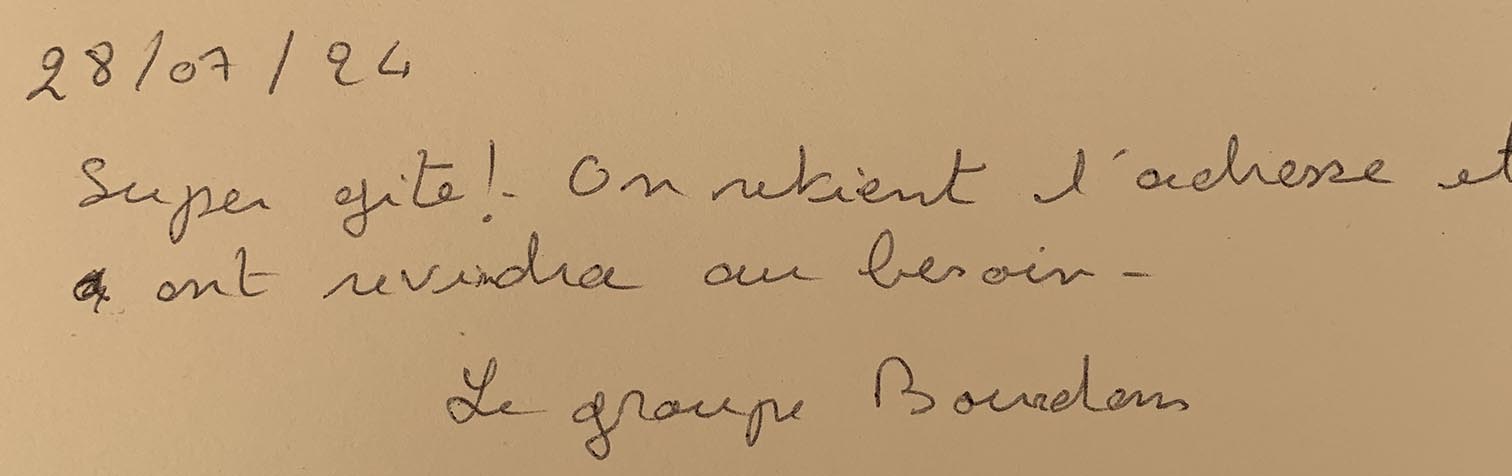 28/07/24
Super gite! On retient l'adresse et
ont revindra au besoin -
Le groupe Bourdons